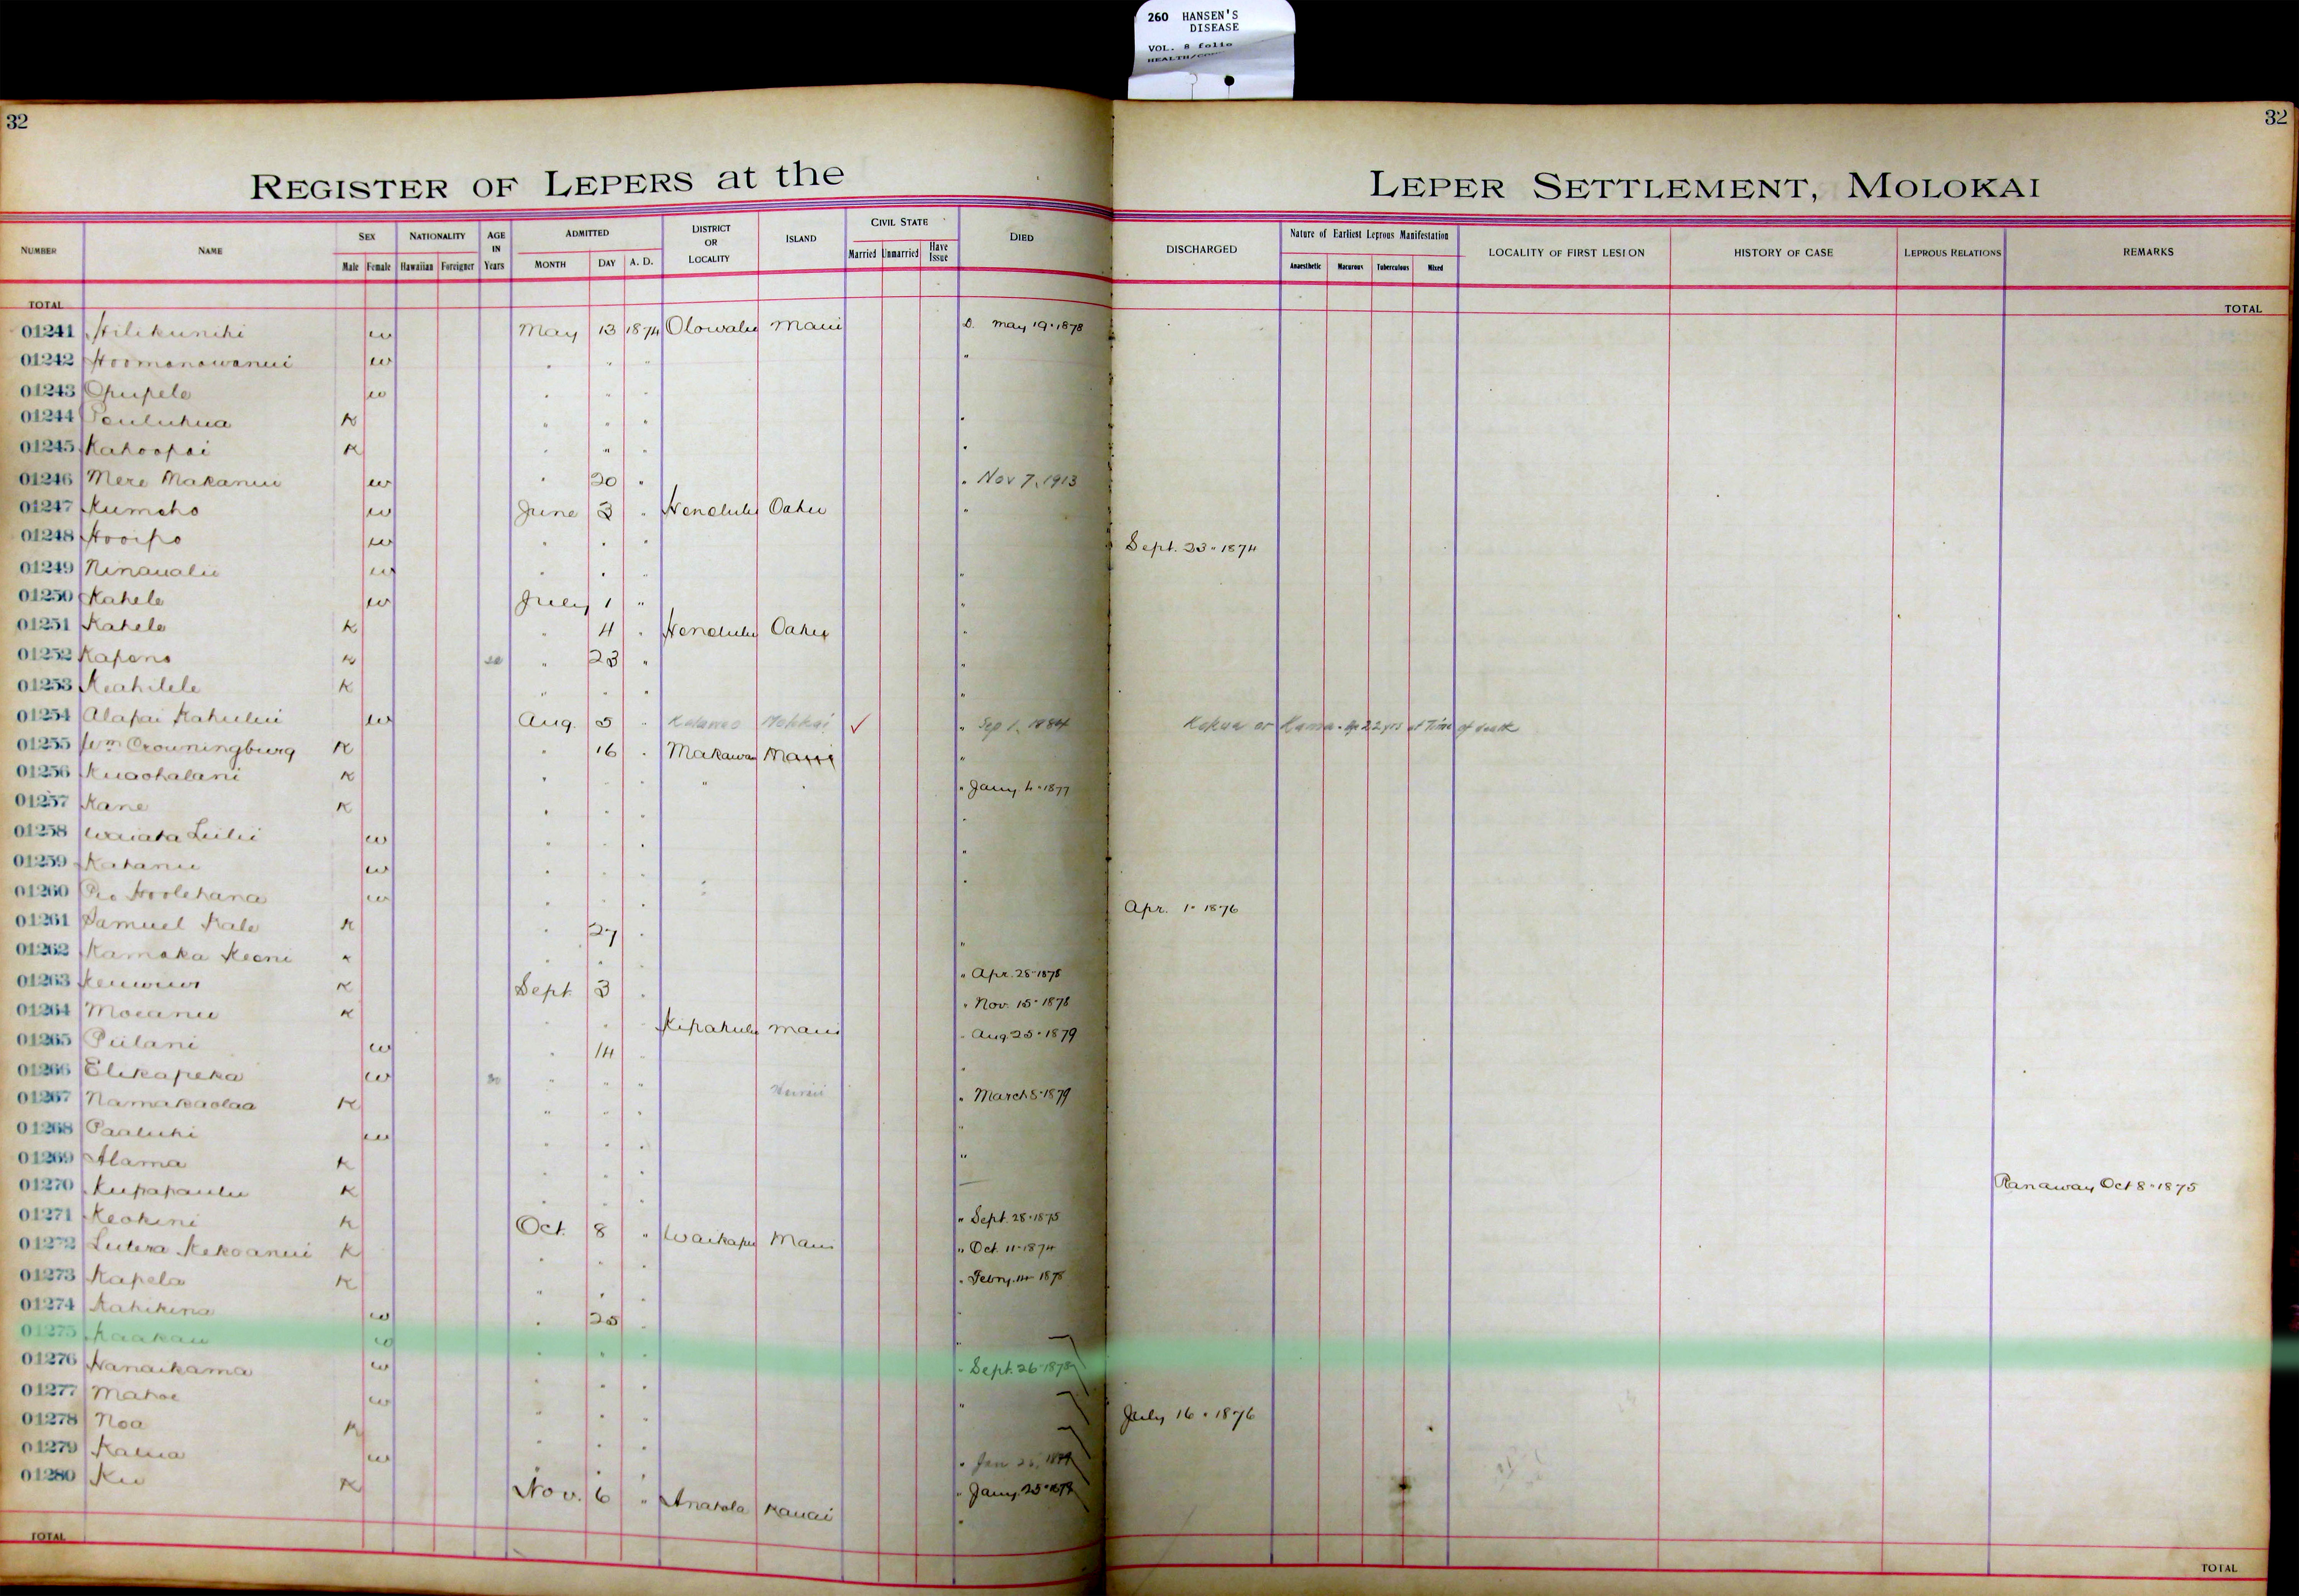 260 HANSEN'S
DISEASE
VOL. 8 folio
32 32
REGISTER OF LEPERS at the LEPER SETTLEMENT, MOLOKAI
NUMBER NAME SEX Male Female NATIONALITY Hawaiian Foreigner AGE IN Years ADMITTED MONTH DAY A. D. DISTRICT OR LOCALITY ISLAND CIVIL STATE Married Unmarried Have Issue DIED DISCHARGED Nature of Earliest Leprous Manifestation Anaesthetic Macurous Tuberculous Mixed LOCALITY OF FIRST LESION HISTORY OF CASE LEPROUS RELATIONS REMARKS
TOTAL TOTAL
01241 Hilikunihi w May 13 1874 Olowalu Maui D. May 19 · 1878
01242 Hoomanawanui w " " " "
01243 Opupele w " " "
01244 Pauluhua K " " " "
01245 Kahoopai K " " " "
01246 Mere Makanui w " 20 " " Nov 7, 1913
01247 Kumeho w June 3 " Honolulu Oahu "
01248 Hooipo w " " " Sept. 23 · 1874
01249 Ninaualu w " " " "
01250 Kahele w July 1 " "
01251 Kahele K " 4 " Honolulu Oahu "
01252 Kapono K " 23 " "
01253 Keahilele K " " " "
01254 Alapai Kahului w Aug. 5 " Kalawao Molokai ✓ " Sep 1, 1884 Kokua or Kamaa. Age 22 yrs at Time of death
01255 Wm Crowningburg K " 16 " Makawao Maui "
01256 Kuaohalani K " " " " " " Jany. 4 · 1877
01257 Kane K " " " "
01258 Waiaka Liilii w " " " "
01259 Kahanu w " " " "
01260 Pio Hoolehana w " " " Apr. 1 · 1876
01261 Samuel Kale K " 27 " "
01262 Kamaka Keoni K " " " " Apr. 28 · 1878
01263 K Sept. 3 " " Nov. 15 · 1878
01264 Moeanu K " " " Kipahulu Maui " Aug. 25 · 1879
01265 Piilani w " 14 " "
01266 Elikapeka w 30 " " " Hawaii " March 5 · 1879
01267 Namakaolaa K " " " "
01268 Paaluhi w " " " "
01269 Alama K " " "
01270 Kupapaulu K " " " Ranaway Oct 8 · 1875
01271 Keokini K Oct. 8 " Waikapu Maui " Sept. 28 · 1875
01272 Lutera Kekoanui K " " " " Oct. 11 · 1874
01273 Kapela K " " " " Febry. 14 · 1878
01274 Kahikina w " 25 " "
01275 Kaakau w " " " "
01276 Hanaikama w " " " " Sept. 26 · 1878
01277 Mahoe w " " " "
01278 Noa K " " " July 16 · 1876
01279 Kalua w " " " " Jan 26,
01280 Ku K Nov. 6 " Anahola Kauai " Jany. 25 ·
TOTAL TOTAL